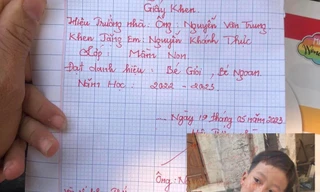 Giấy Khen
Hiệu Trưởng nhà Ông: Nguyễn Văn Trung
Khen Tặng Em: Nguyễn Khánh Thức
Lớp: Mầm Non
Đạt danh hiệu: Bé Giỏi, Bé Ngoan
Năm Học: 2022 - 2023
Ngày 19 tháng 05 năm 2023
Ông: N